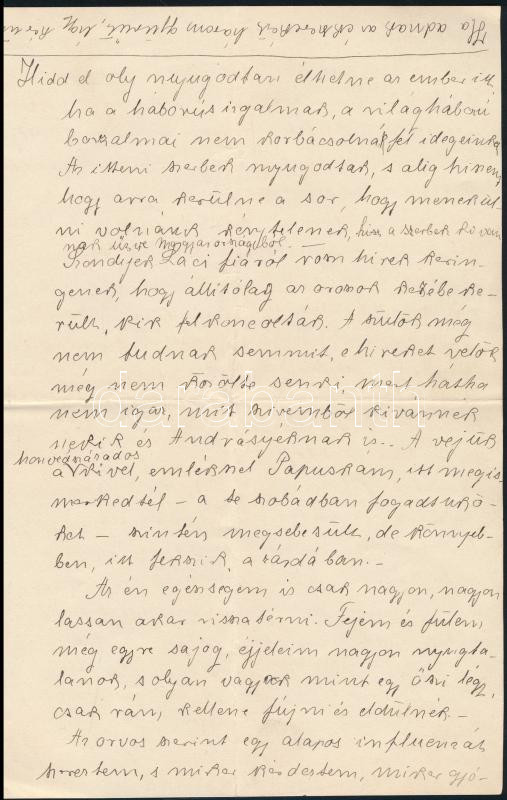 Ha adnak az ékszerekért három gyűrűt, húz
Hidd el oly nyugodtan élhetne az ember itt
ha a háborús izgalmak, a világháború
borzalmai nem korbácsolnák fel idegeinket
Az itteni szerbek nyugodtak, s alig hinem,
hogy arra kerülne a sor, hogy menekül-
ni volnánk kénytelenek, hisz a szerbek ki van
nak űzve Magyarországból. —
Laci fiáról rossz hírek kerin-
genek, hogy állitólag az oroszok kezébe ke-
rült, kik felkoncolták. A szülők még
nem tudnak semmit, e híreket velök
még nem közölte senki, mert hátha
nem igaz, mit szivemből kivánnék
nekik és Andrásyéknak is.. A vejük
honvédszázados
a Vilivel, emlékszel Papuskám, itt megis-
merkedtél – a te szobádban fogadtuk ő-
ket – szintén megsebesült, de könnyeb-
ben, itt fekszik a zárdában. –
Az én egészségem is csak nagyon, nagyon
lassan akar visszatérni. Fejem és fülem
még egyre sajog, éjjeleim nagyon nyugta-
lanok, s olyan vagyok mint egy őszi légy,
csak rám, kellene fújni és eldülnék –
Az orvos szerint egy alapos influenzát
szereztem, s mikor kérdeztem, mikor gyó-
darabanth